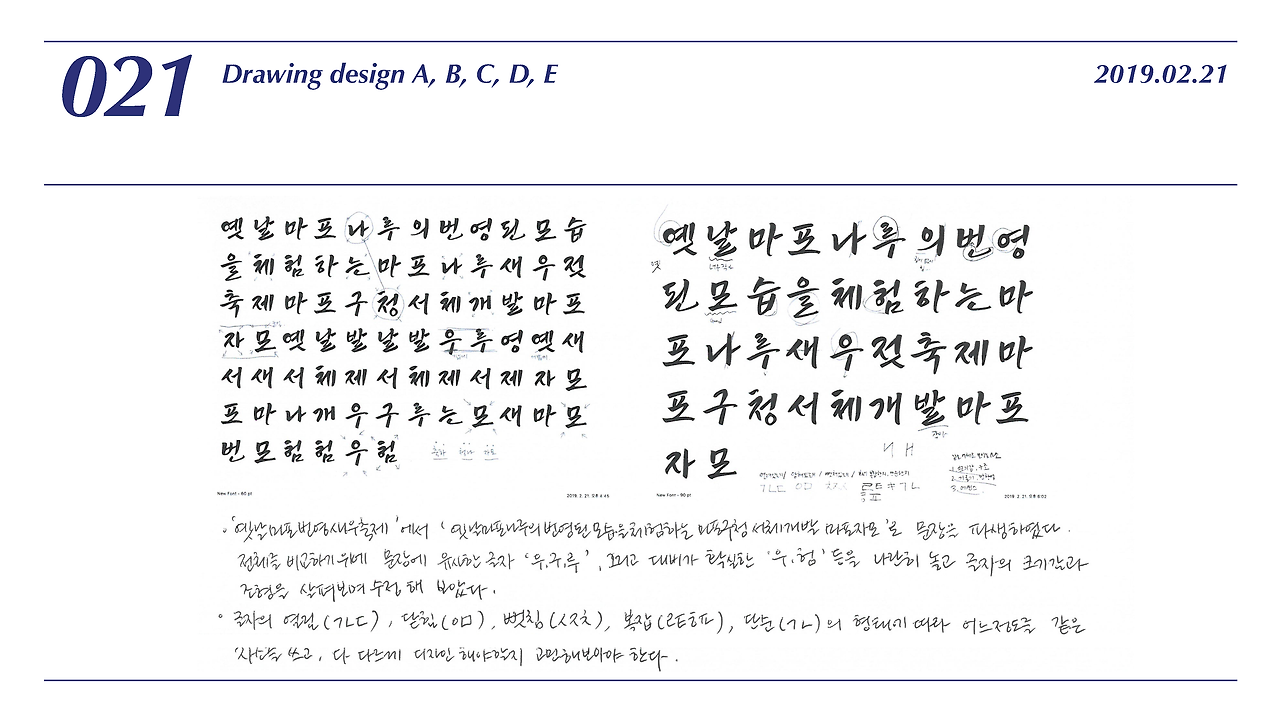 021
Drawing design A, B, C, D, E
2019.02.21
옛날마포나루의번영된모습
을체험하는마포나루새우젓
축제마포구청서체개발마포
자모옛날발날발우루영옛새
서새서체제서체제서제자모
포마나개우구루는모새마모
번모험험우험
New Font - 80 pt
2019. 2. 21. 오후 4:45
옛날마포나루의번영
된모습을체험하는마
포나루새우젓축제마
포구청서체개발마포
자모
New Font - 90 pt
2019. 2. 21. 오후 6:02
'옛날마포번영새우축제'에서 '옛날마포나루의번영된모습을체험하는 마포구청서체개발 마포자모'로 문장을 파생하였다.
전체를 비교하기위해 문장에 유사한글자 '우,구,루', 그리고 대비가 확실한 '우,험' 등을 나란히 놓고 글자의 크기감과
조형을 살펴보며 수정해 보았다.
글자의 열결(ㄱㄴㄷ), 닫힘(ㅇㅁ), 뻗침(ㅅㅈㅊ), 복잡(ㄹㅌㅎㅍ), 단순(ㄱㄴ)의 형태에 따라 어느정도를 같은
'사상을 쓰고, 다 다르게 디자인해야할지 고민해보아야 한다.